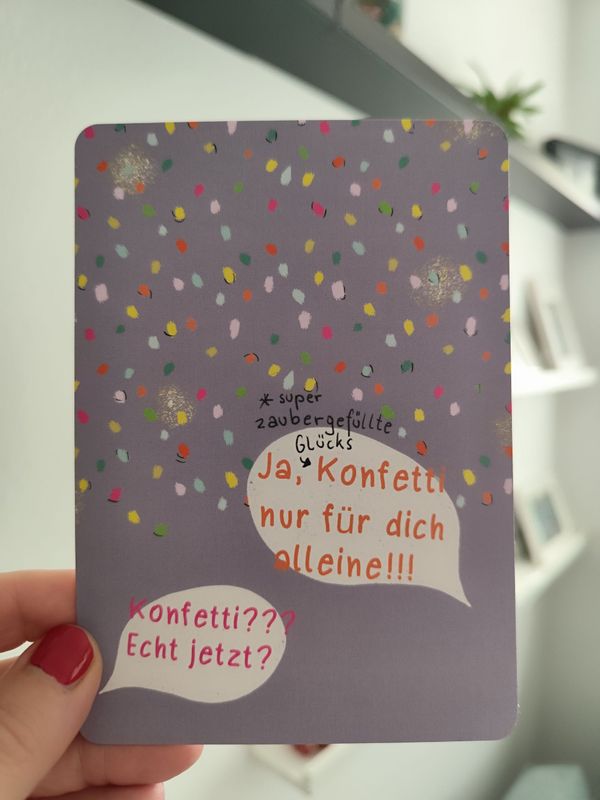 * super
zaubergefüllte
GLücks
Ja, Konfetti
nur für dich
alleine!!!
Konfetti???
Echt jetzt?